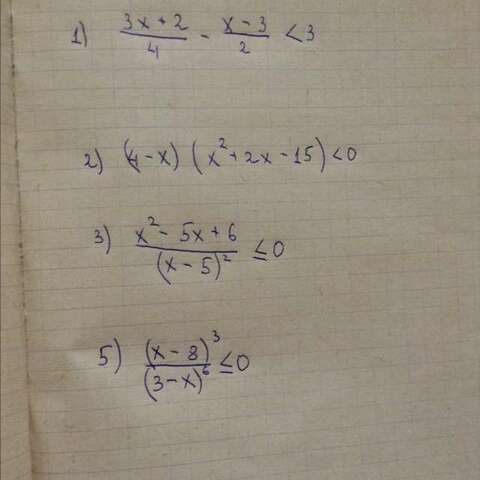 1) (3x+2)/4 - (x-3)/2 < 3
2) (4-x) (x²+2x-15) < 0
3) (x²-5x+6)/(x-5)² ≤ 0
5) (x-8)³/(3-x)⁶ ≤ 0